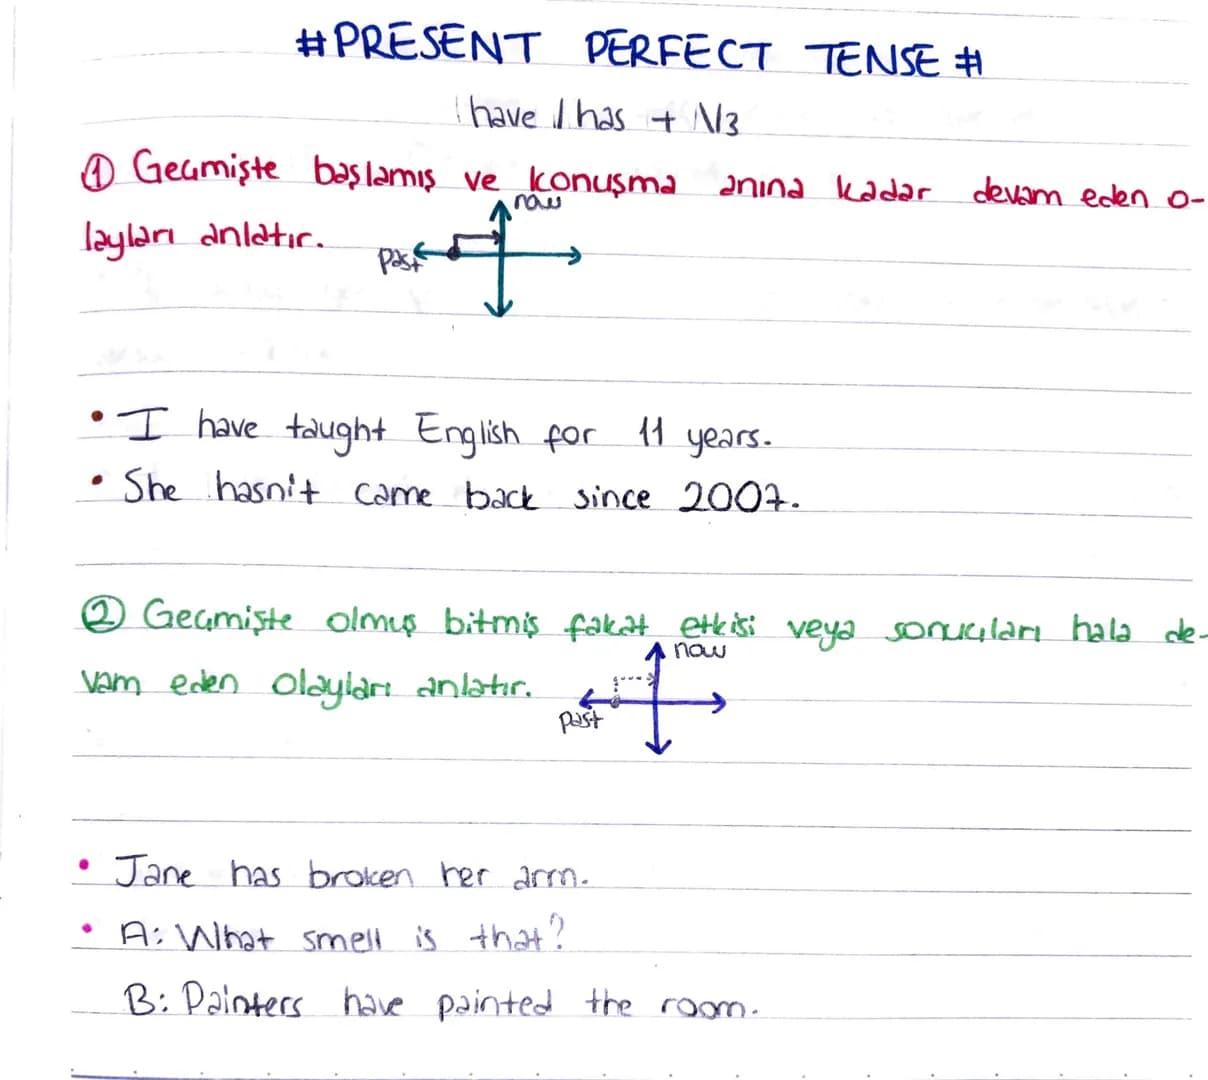 #PRESENT PERFECT TENSE #
have / has + V3
① Geçmişte başlamış ve konuşma anına kadar devam eden o-
now
layları anlatır.
past
• I have taught English for 11 years.
• She hasn't came back since 2007.
② Geçmişte olmuş bitmiş fakat etkisi veya sonuçları hala de-
now
vam eden olayları anlatır.
past
• Jane has broken her arm.
• A: What smell is that?
B: Painters have painted the room.